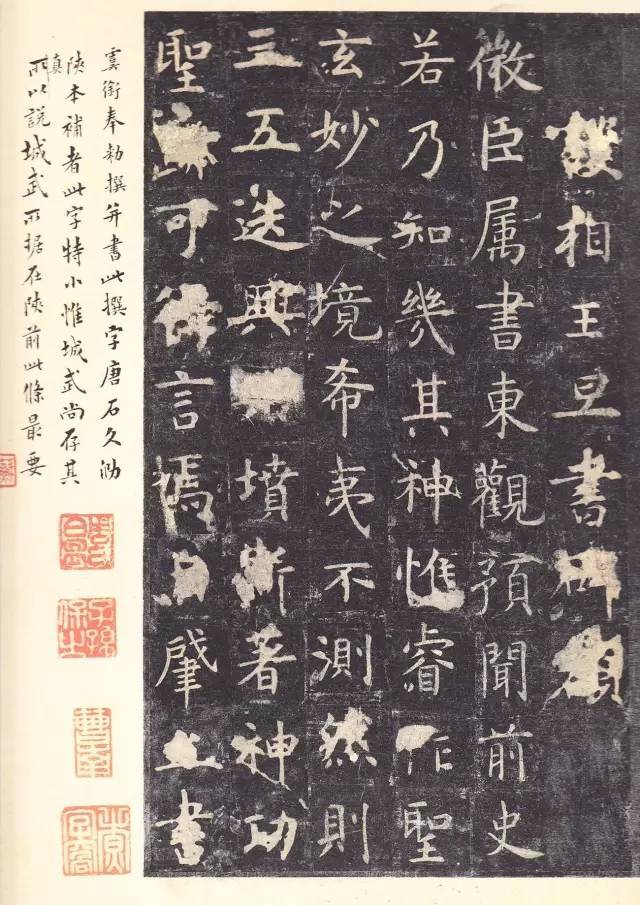 護相王旦書碑額
微臣属書東觀預聞前史
若乃知幾其神惟睿作聖
玄妙之境希夷不測然則
三五迭興墳斯著神功
聖跡可得言焉自肇立書
虞銜奉勅撰并書此撰字唐石久泐
陝本補者此字特小惟城武尚存其
真
所以說城武所据在陝前此條最要
子孫保之